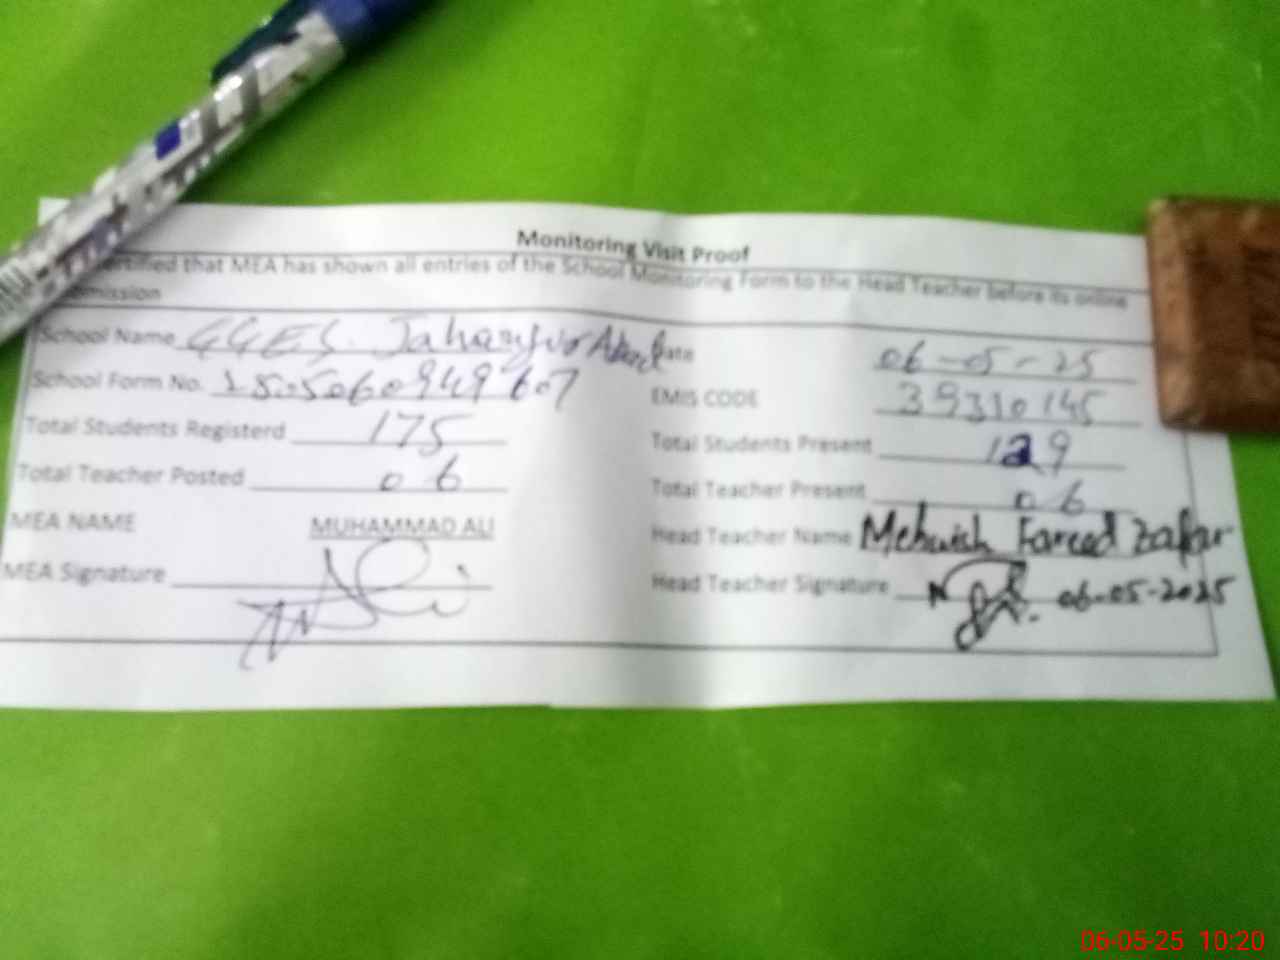 Monitoring Visit Proof
that MEA has shown all entries of the School Monitoring Form to the Head Teacher before its online
School Name GGES. Jahangir Abad Date 06-05-25
School Form No. EMIS CODE 39310145
Total Students Registerd 175 Total Students Present 129
Total Teacher Posted 06 Total Teacher Present 06
MEA NAME MUHAMMAD ALI Head Teacher Name Mehwish Fareed Zafar
MEA Signature Head Teacher Signature 06-05-2025
06-05-25 10:20